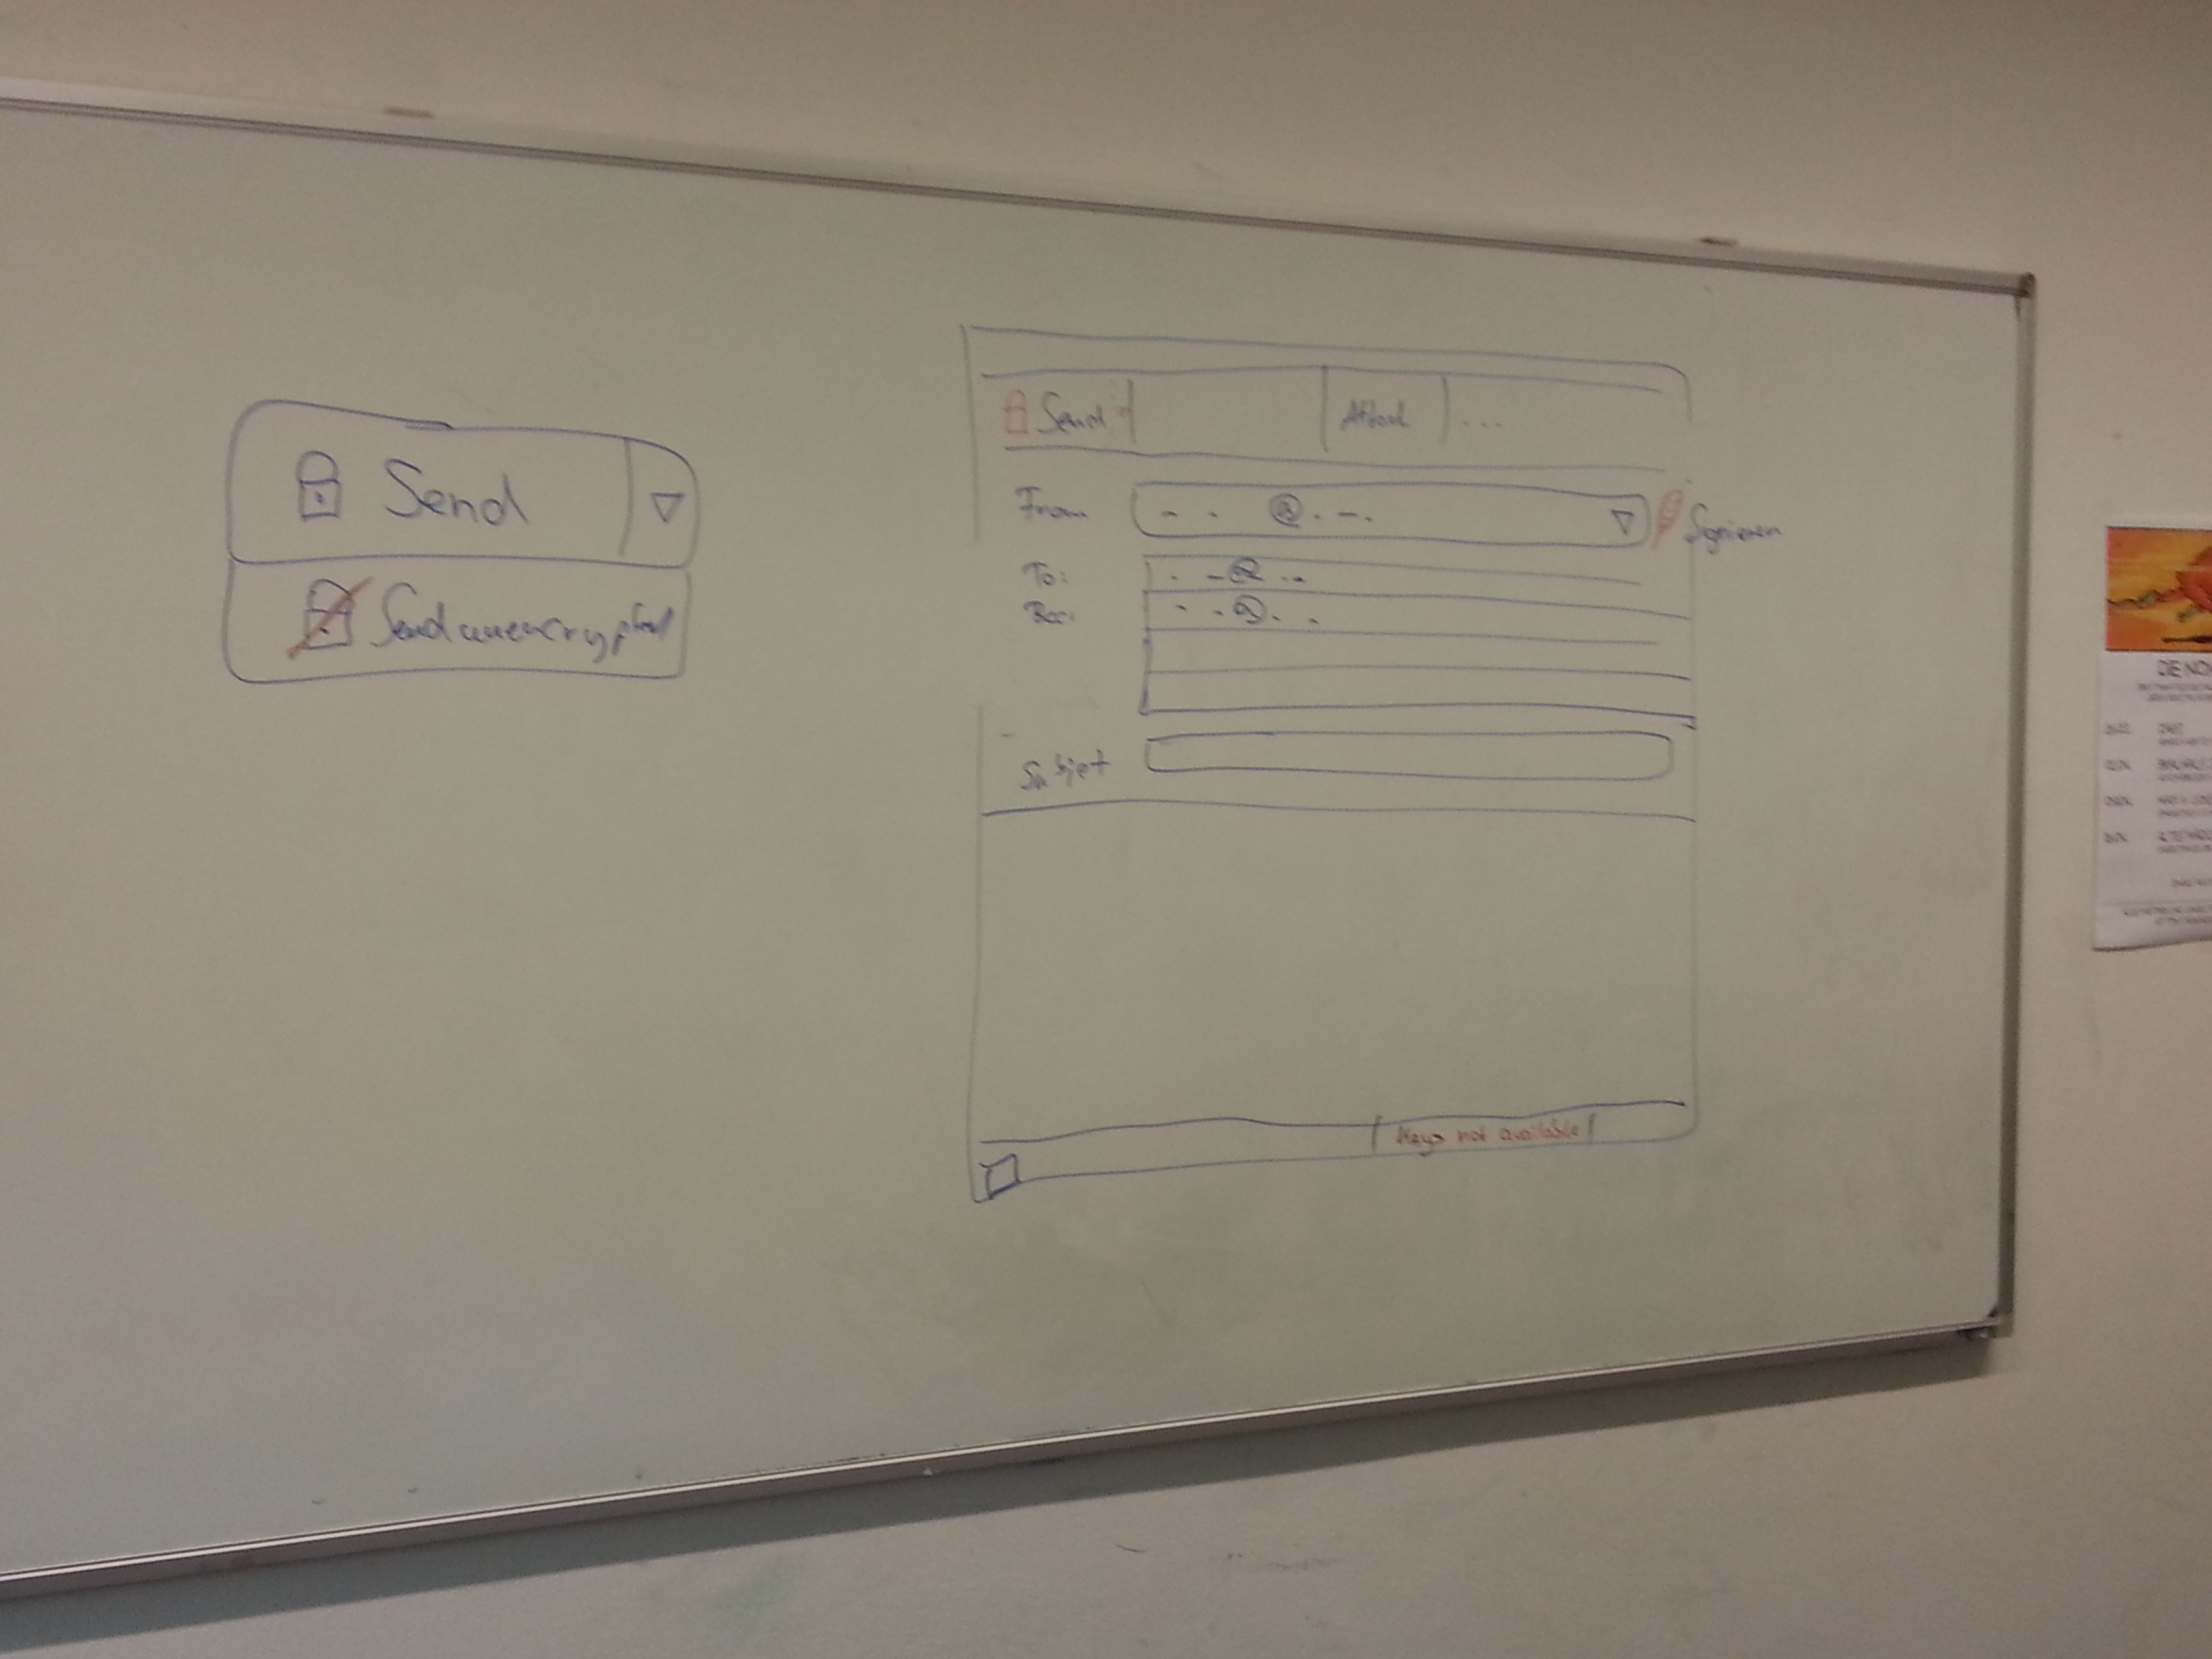 Send
Send unencrypted
Send
Attach
...
From
@
Signieren
To:
@
Bcc:
@
Subject
Keys not available
DE NO